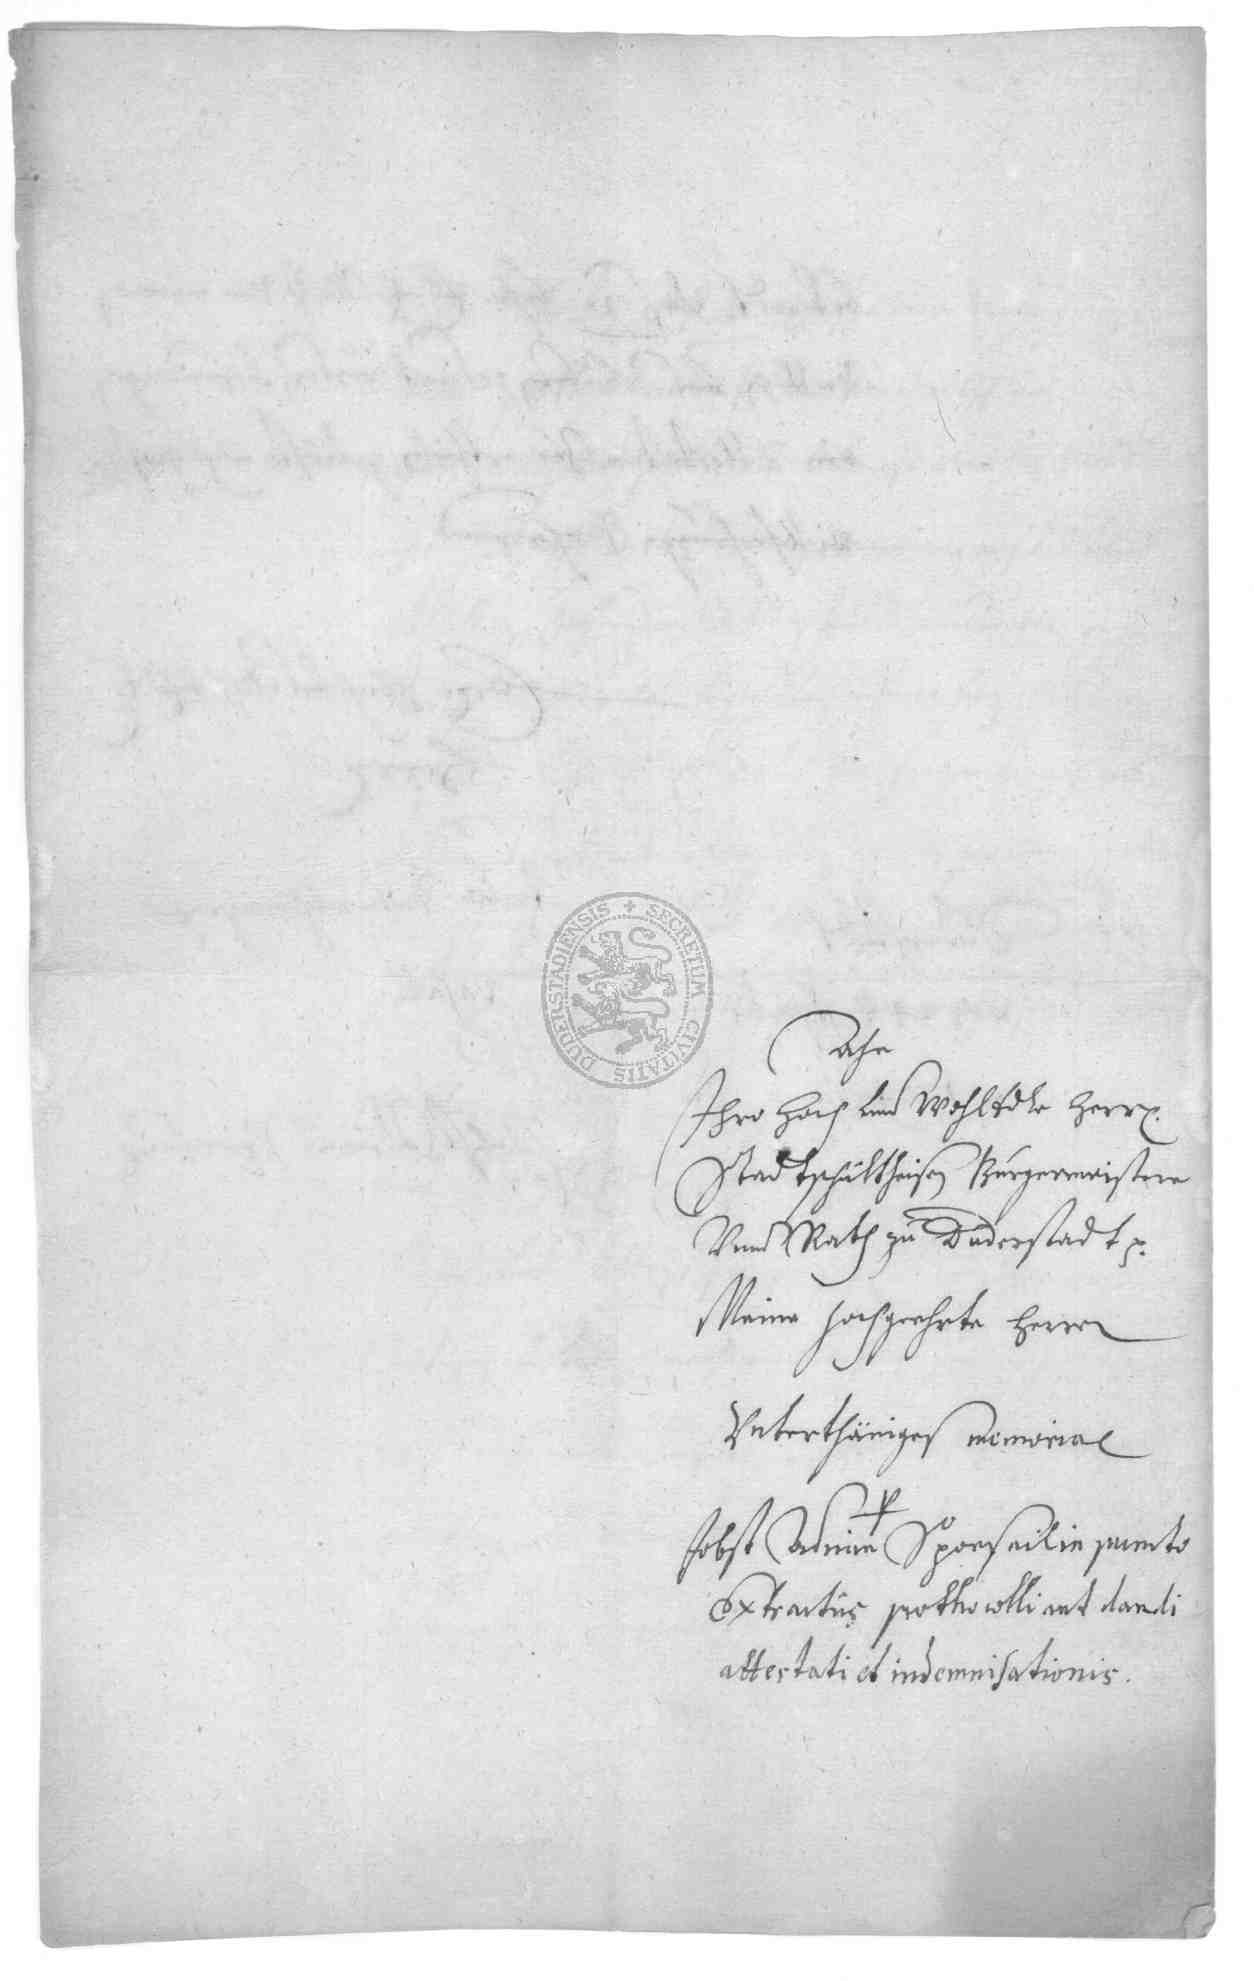 SECRETUM CIVITATIS DUDERSTADIENSIS
Ahn
Ihro Hoch und WohlEdle Herrn
Stadtschultheißen Bürgermeistere
Und Rath zu Duderstadt p.
Meine hochgeehrte Herren
Unterthäniges memorial
Jobst in puncto
Extractus prothocolli aut dandi
attestati et indemnisationis.